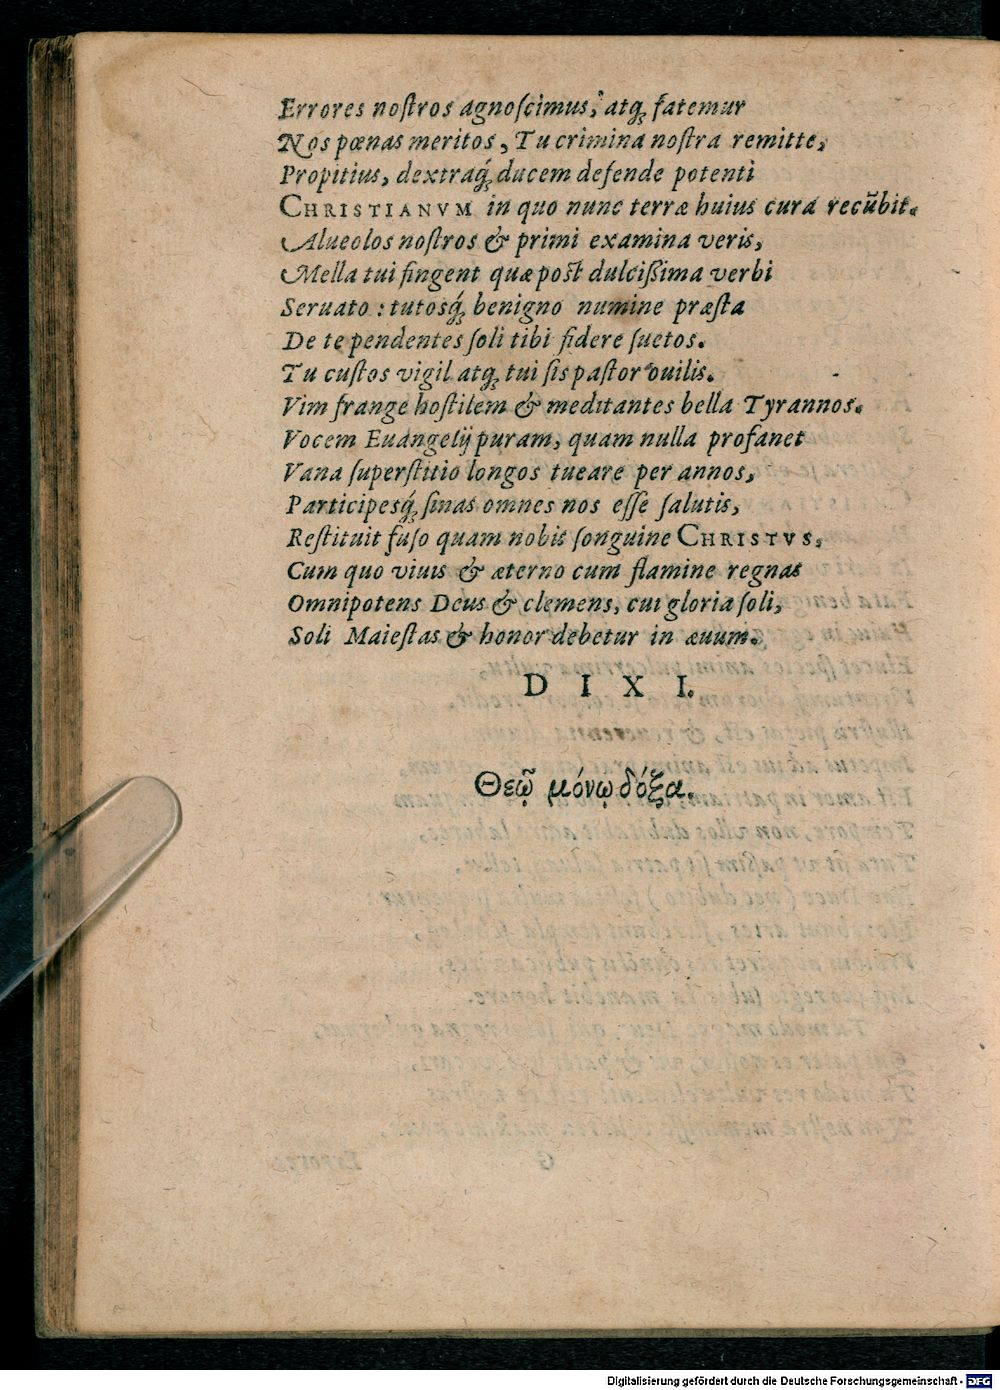 Errores noſtros agnoſcimus, atq́; fatemur
Nos pœnas meritos, Tu crimina noſtra remitte,
Propitius, dextraq́; ducem defende potenti
CHRISTIANVM in quo nunc terræ huius cura recũbit.
Alueolos noſtros & primi examina veris,
Mella tui fingent quæ poſt dulcißima verbi
Seruato: tutosq́; benigno numine præſta
De te pendentes ſoli tibi fidere ſuetos.
Tu cuſtos vigil atq́; tui ſis paſtor ouilis.
Vim frange hoſtilem & meditantes bella Tyrannos.
Vocem Euangelij puram, quam nulla profanet
Vana ſuperſtitio longos tueare per annos,
Participesq́; ſinas omnes nos eſſe ſalutis,
Reſtituit fuſo quam nobis ſonguine CHRISTVS,
Cum quo viuis & æterno cum flamine regnas
Omnipotens Deus & clemens, cui gloria ſoli,
Soli Maieſtas & honor debetur in æuum.
D I X I.
Θεῷ μόνῳ δόξα.
Digitalisierung gefördert durch die Deutsche Forschungsgemeinschaft - DFG